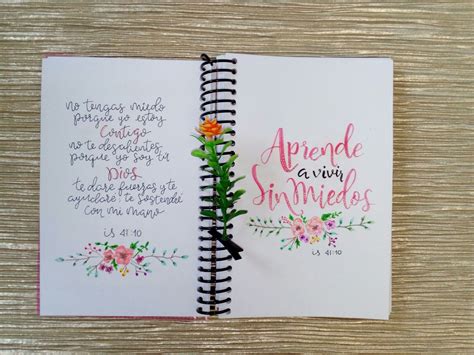 no tengas miedo
porque yo estoy
Contigo
no te desalientes
porque yo soy tu
Dios
te dare fuerzas y te
ayudare; te sostendré
con mi mano
is 41:10
Aprende
a vivir
Sin Miedos
is 41:10